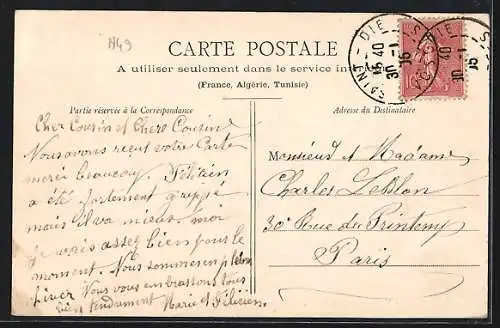 N49
CARTE POSTALE
A utiliser seulement dans le service
(France, Algérie, Tunisie)
Partie réservée à la Correspondance
Adresse du Destinataire
SAINT-DIÉ
15 40
30-1
Cher Cousin et Chère Cousine
Nous avons reçut votre Carte
merci beaucoup. Félicien
a été fortement grippé
mais il va mieux. moi
je vais assez bien pour le
moment. Nous sommes en plein
hiver Nous vous embrassons tous
bien tendrement Marie et Félicien.
Monsieur et Madame
Charles Leblon
30 Rue du Printemps
Paris